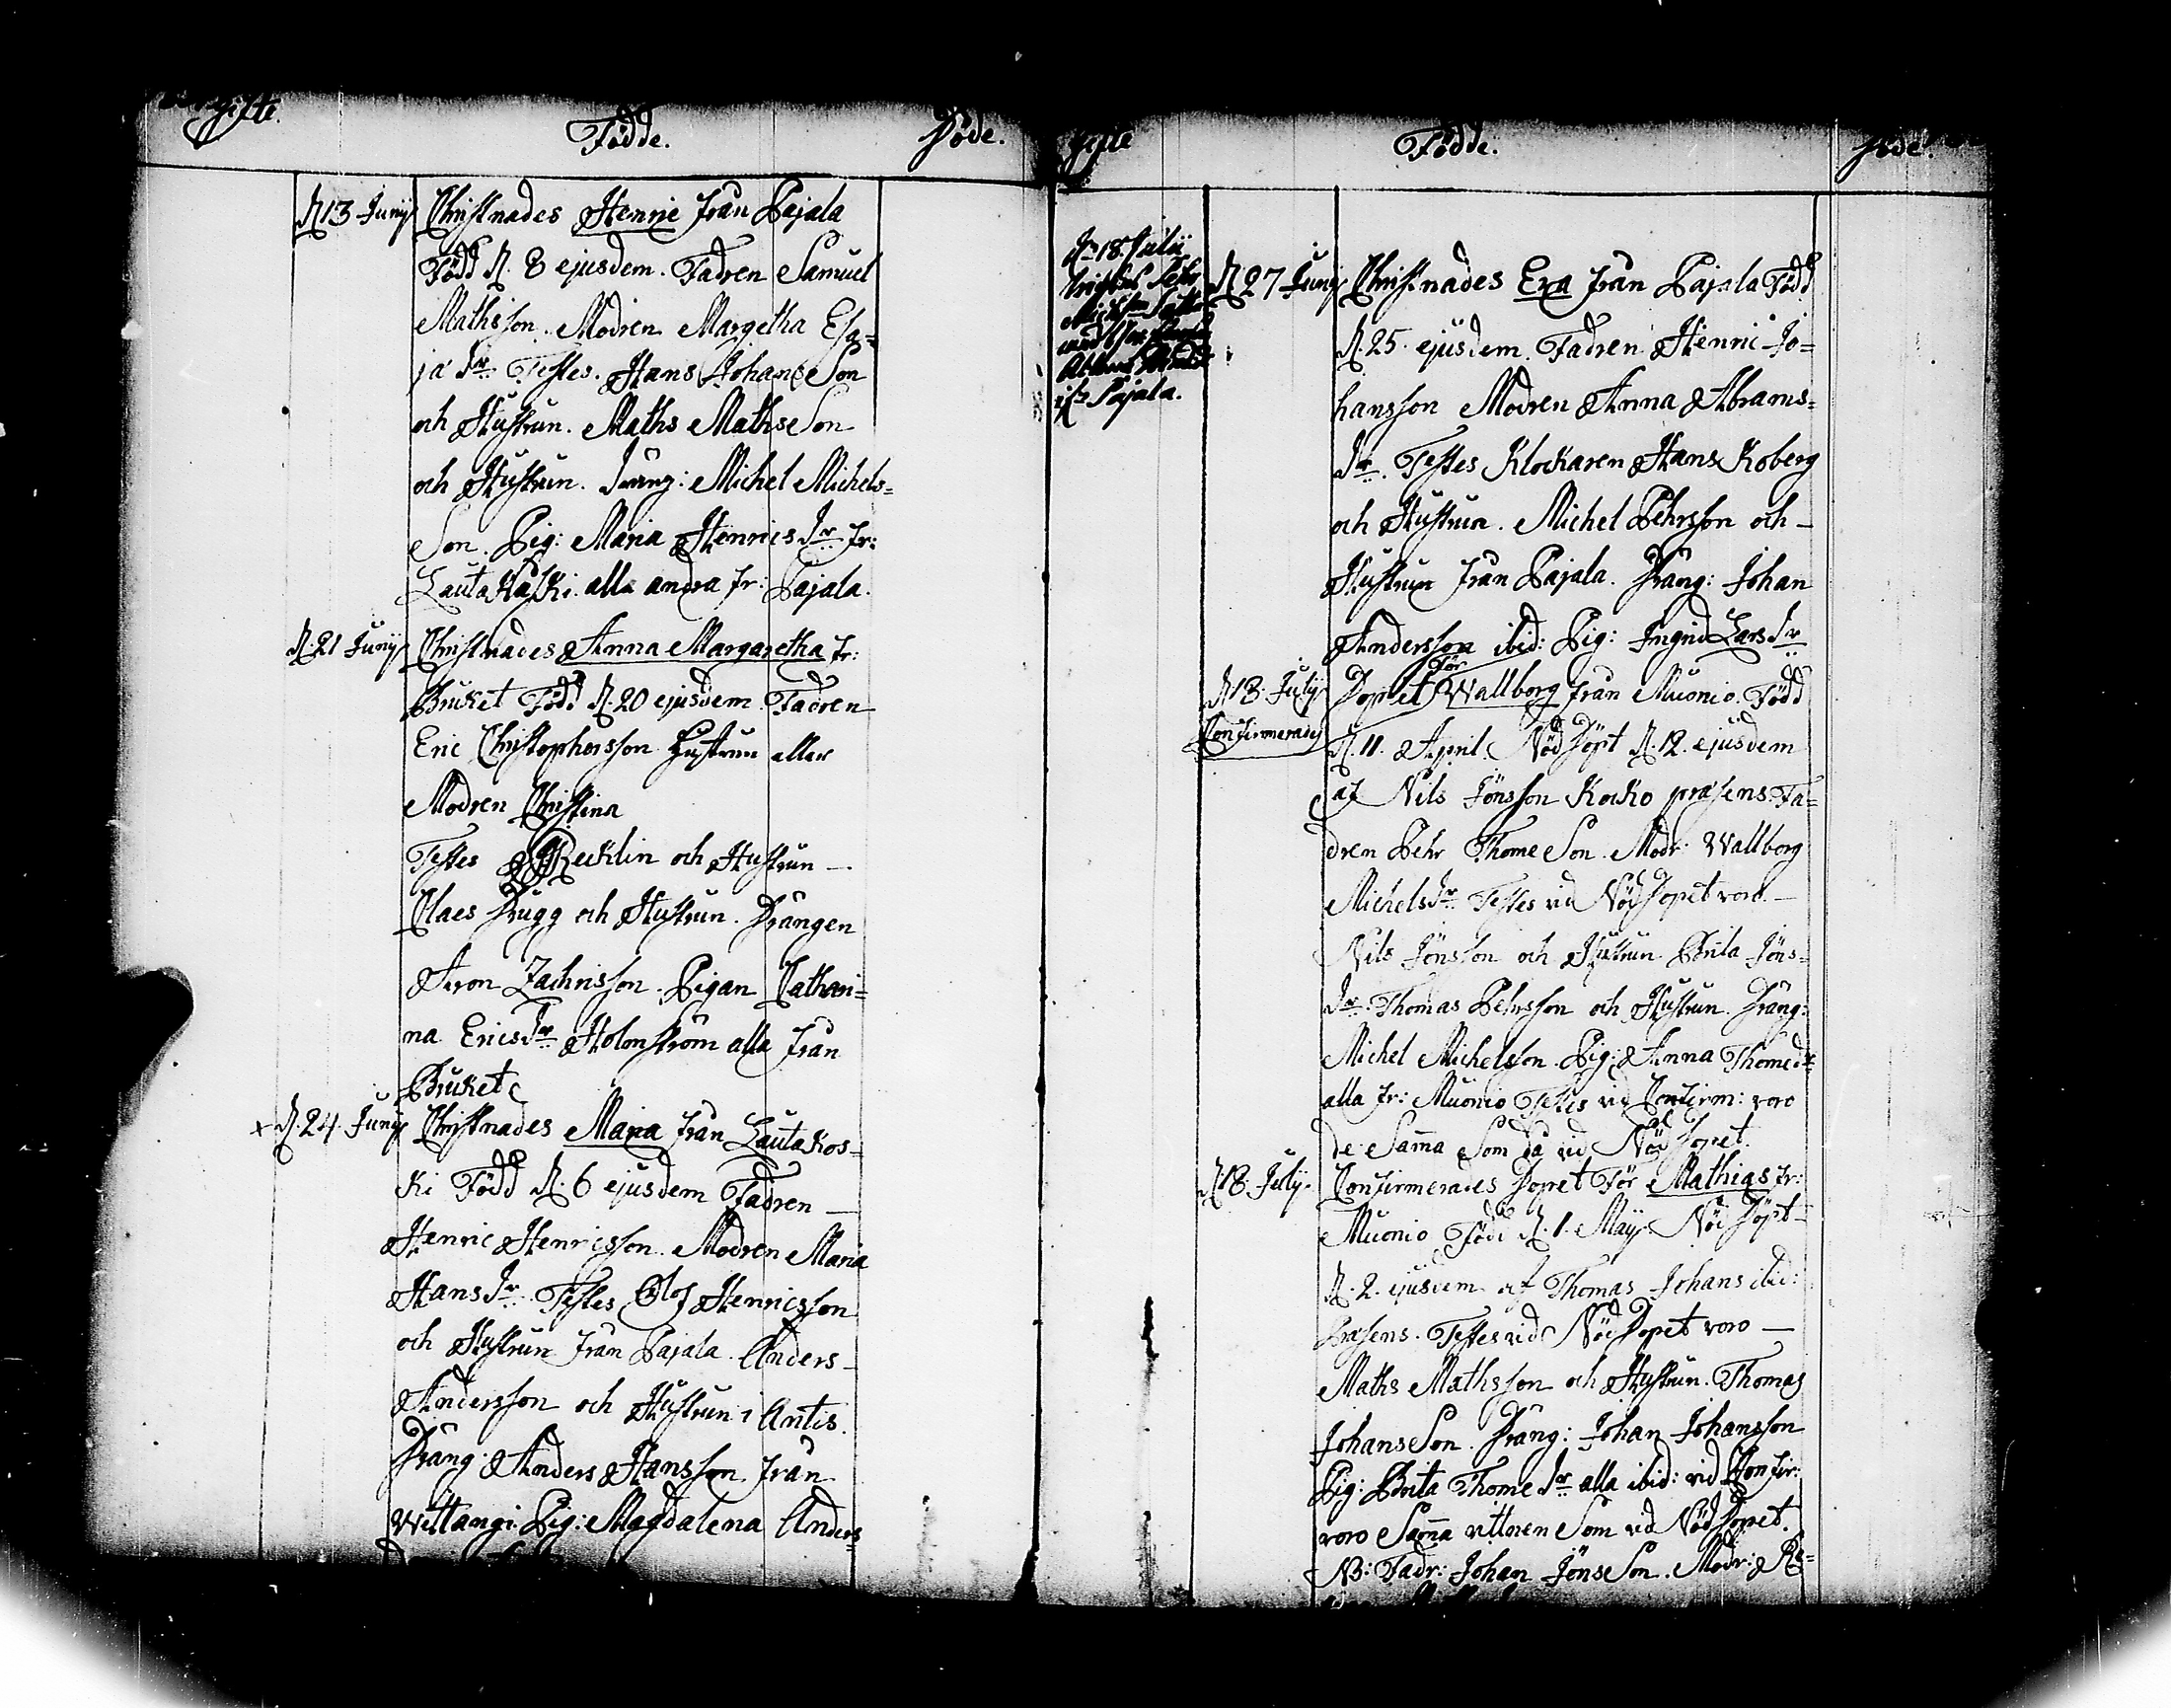 gifte.
Födde.
Döde.
D. 13 Junij Christnades Henric från Pajala
Född d. 8 ejusdem. Fadren Samuel
Mathsson. Modren Margetha Esa-
ja dr. Testes. Hans JohansSon
och Hustrun. Maths MathsSon
och Hustrun. Dräng: Michel Michels-
Son. Pig: Maria Henrics dr fr:
Lautakåski. alla andra fr: Pajala.
D. 21 Junij Christnades Anna Margaretha fr:
Bruket Född d. 20 ejusdem. Fadren
Eric Christophersson Hustrun eller
Modren Christina
Testes Recklin och Hustrun —
Claes Drugg och Hustrun. Drängen
Aron Zachrisson. Pigan Cathari-
na Erics dr Holmström alla från
Bruket
x D. 24 Junij Christnades Maria från Lautakos-
ki Född d. 6 ejusdem Fadren —
Henric Henricsson. Modren Maria
Hans dr. Testes Olof Henricsson
och Hustrun från Pajala. Anders
Andersson och Hustrun i Antis.
Dräng: Anders Hansson från
Wittangi. Pig: Magdalena Anders
gifte
Födde.
Döde.
D. 18. Julii
Pajala.
D. 27 Junij Christnades Eva från Pajala Född
d. 25. ejusdem. Fadren Henric Jo-
hansson Modren Anna Abrams-
dr. Testes Klockaren Hans Koberg
och Hustrun. Michel Pehrsson och —
Hustrun från Pajala. Dräng: Johan
Andersson ibid: Pig: Ingrid Lars dr
D. 13. July Dopet för Wallborg från Muonio. Född
Confirmerades d. 11. April. Nöd Döpt d. 12. ejusdem
af Nils Jönsson Kocko præsens. Fa-
dren Pehr ThomeSon. Modr: Wallborg
Michels dr. Testes vid Nöd Dopet voro. —
Nils Jönsson och Hustrun Brita Jöns-
dr. Thomas Pehrsson och Hustrun. Dräng:
Michel Michelsson. Pig: Anna Thome dr
alla fr: Muonio Testes vid Confirm: voro
de Sama Som då vid Nöd Dopet.
D. 18. July. Confirmerades Dopet För Mathias fr:
Muonio Född d. 1. Maij. Nöd Döpt
d. 2. ejusdem af Thomas Johans ibid:
Præsens. Testes vid Nöd Dopet voro —
Maths Mathsson och Hustrun. Thomas
JohansSon. Dräng: Johan Johansson
Pig: Brita Thome dr alla ibid: vid Confir:
voro Sama vittnen Som vid Nöd Dopet.
NB: Fadr: Johan JönsSon. Modr: Re-